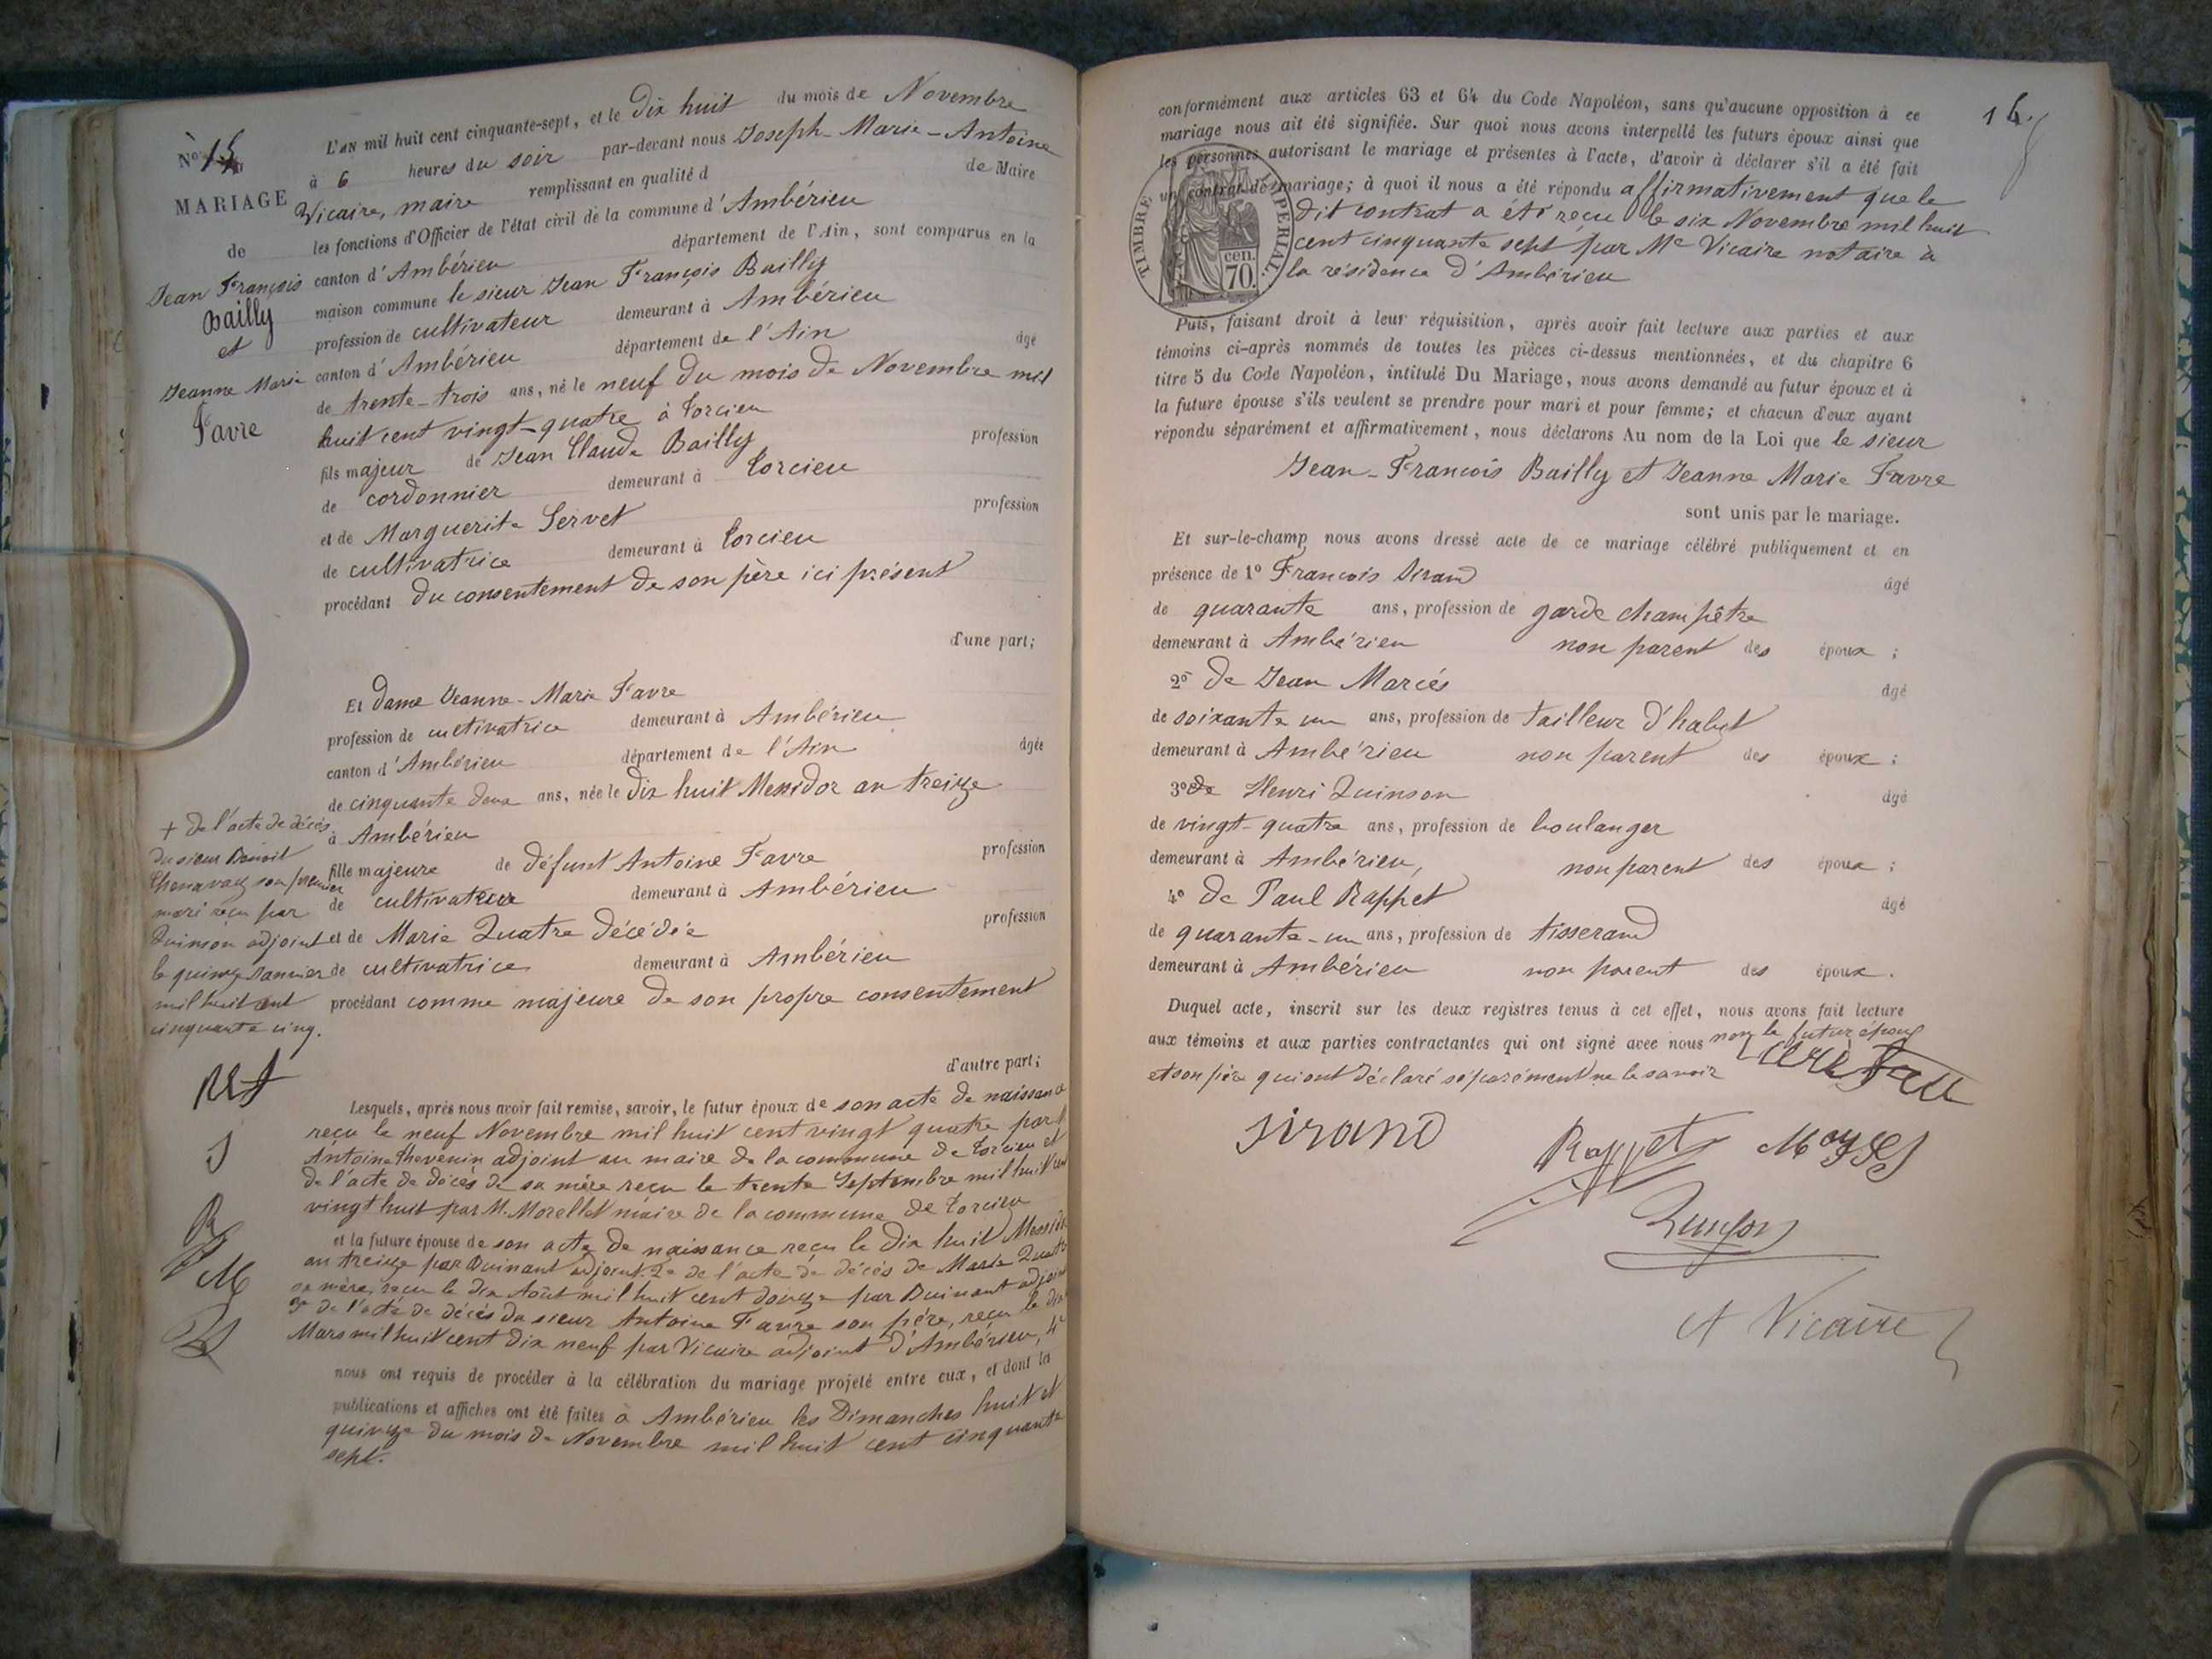 No 15
MARIAGE
de
Jean François
Bailly
et
Jeanne Marie
Favre
L'AN mil huit cent cinquante-sept, et le Dix huit du mois de Novembre
à 6 heures du soir par-devant nous Joseph-Marie-Antoine
Vicaire, maire remplissant en qualité d de Maire
les fonctions d'Officier de l'état civil de la commune d'Ambérieu
canton d'Ambérieu département de l'Ain, sont comparus en la
maison commune le sieur Jean François Bailly
profession de cultivateur demeurant à Ambérieu
canton d'Ambérieu département de l'Ain âgé
de trente-trois ans, né le neuf du mois de Novembre mil
huit cent vingt-quatre à Torcieu
fils majeur de Jean Claude Bailly profession
de cordonnier demeurant à Torcieu
et de Marguerite Servet profession
de cultivatrice demeurant à Torcieu
procédant du consentement de son père ici présent
d'une part;
Et Dame Jeanne-Marie Favre
profession de cultivatrice demeurant à Ambérieu
canton d'Ambérieu département de l'Ain âgée
de cinquante deux ans, née le dix huit Messidor an treize
à Ambérieu
fille majeure de défunt Antoine Favre profession
de cultivateur demeurant à Ambérieu
et de Marie Quatre décédée profession
de cultivatrice demeurant à Ambérieu
procédant comme majeure de son propre consentement
d'autre part;
+ de l'acte de décès
du sieur Benoit
son premier
mari reçu par
Quinson adjoint
le quinze Janvier
mil huit cent
cinquante cinq.
Lesquels, après nous avoir fait remise, savoir, le futur époux de son acte de naissance
reçu le neuf Novembre mil huit cent vingt quatre par
Antoine Thevenin adjoint au maire de la commune de Torcieu et
de l'acte de décès de sa mère reçu le trente Septembre mil huit cent
vingt huit par M. Morellet maire de la commune de Torcieu
et la future épouse de son acte de naissance reçu le dix huit Messidor
an treize par Buinant adjoint. 2e de l'acte de décès de Marie Quatre
sa mère, reçu le dix Août mil huit cent douze par Buinant adjoint
3e de l'acte de décès du sieur Antoine Favre son père, reçu le dix
Mars mil huit cent dix neuf par Vicaire adjoint d'Ambérieu, 4e
nous ont requis de procéder à la célébration du mariage projeté entre eux, et dont les
publications et affiches ont été faites à Ambérieu les Dimanches huit et
quinze du mois de Novembre mil huit cent cinquante
sept.
16.
conformément aux articles 63 et 64 du Code Napoléon, sans qu'aucune opposition à ce
mariage nous ait été signifiée. Sur quoi nous avons interpellé les futurs époux ainsi que
les personnes autorisant le mariage et présentes à l'acte, d'avoir à déclarer s'il a été fait
un contrat de mariage; à quoi il nous a été répondu affirmativement que le
dit contrat a été reçu le six Novembre mil huit
cent cinquante sept par Me Vicaire notaire à
la résidence d'Ambérieu
TIMBRE IMPERIAL.
cen.
70.
Puis, faisant droit à leur réquisition, après avoir fait lecture aux parties et aux
témoins ci-après nommés de toutes les pièces ci-dessus mentionnées, et du chapitre 6
titre 5 du Code Napoléon, intitulé Du Mariage, nous avons demandé au futur époux et à
la future épouse s'ils veulent se prendre pour mari et pour femme; et chacun d'eux ayant
répondu séparément et affirmativement, nous déclarons Au nom de la Loi que le sieur
Jean-François Bailly et Jeanne Marie Favre
sont unis par le mariage.
Et sur-le-champ nous avons dressé acte de ce mariage célébré publiquement et en
présence de 1o François Sirand âgé
de quarante ans, profession de garde champêtre
demeurant à Ambérieu non parent des époux ;
2o de Jean Mariés âgé
de soixante un ans, profession de tailleur d'habit
demeurant à Ambérieu non parent des époux ;
3o de Henri Quinson âgé
de vingt-quatre ans, profession de boulanger
demeurant à Ambérieu, non parent des époux ;
4o de Paul Rappet âgé
de quarante-un ans, profession de tisserand
demeurant à Ambérieu non parent des époux.
Duquel acte, inscrit sur les deux registres tenus à cet effet, nous avons fait lecture
aux témoins et aux parties contractantes qui ont signé avec nous non le futur époux
et son père qui ont déclaré séparément ne le savoir
Sirand
Rappet
Quinson
A Vicaire